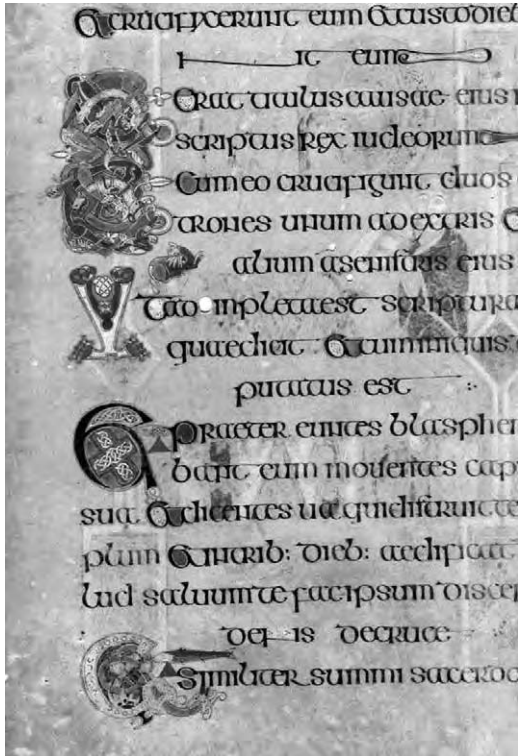 Et crucifixerunt eum Et custodie
eum
Erat titulus causae eius
scriptus rex iudeorum
Et cum eo crucifigunt duos
trones unum a dextris Et
alium a senistris eius
inpleta est scriptura
quae dicit Et cum iniquis
putatus est
Praeter euntes blasphe
bant eum mouentes cap
sua Et dicentes ua qui distruit te
plum Et in trib: dieb: aedificat
lud saluum te fac ipsum disce
de cruce
similiter summi sacerdo